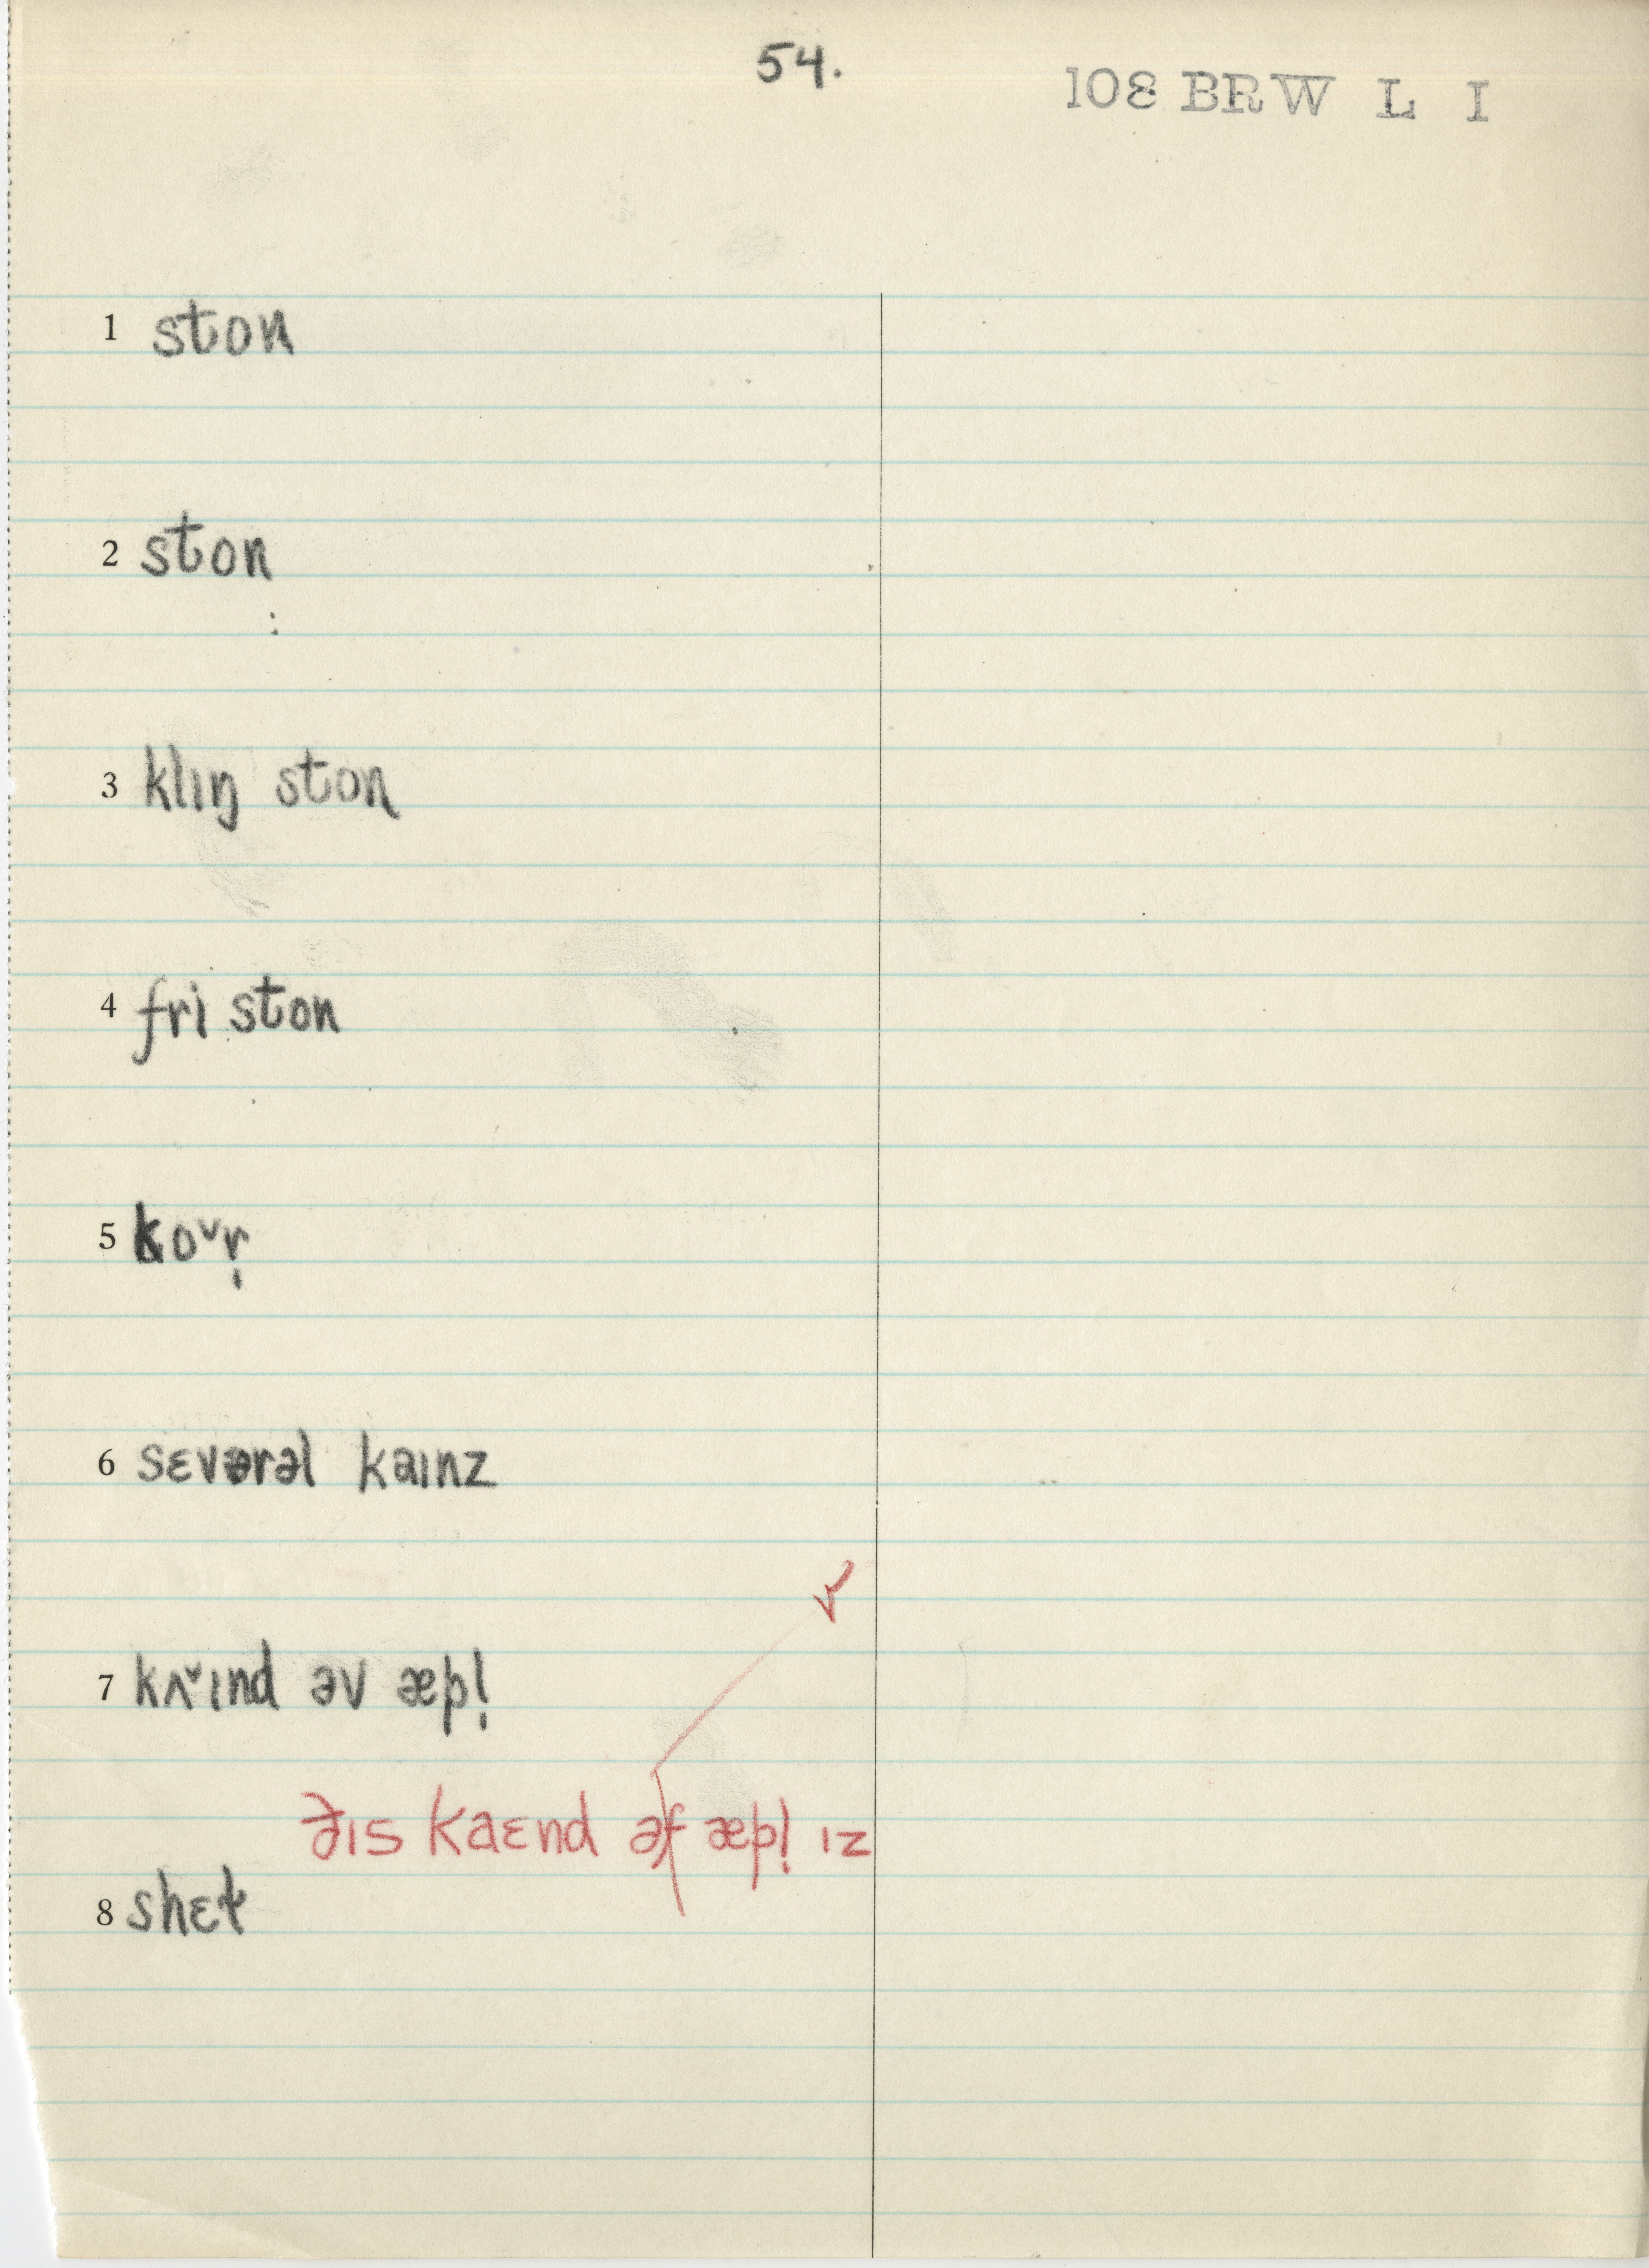 54.
108 BRW L I
1 ston
2 ston
3 klɪŋ ston
4 fri ston
5 ko˅r̩
6 sɛvərəl kaɪnz
7 kʌ˅ɪnd əv æpl̩
ðɪs kaɛnd əf æpl̩ ɪz
8 shɛt